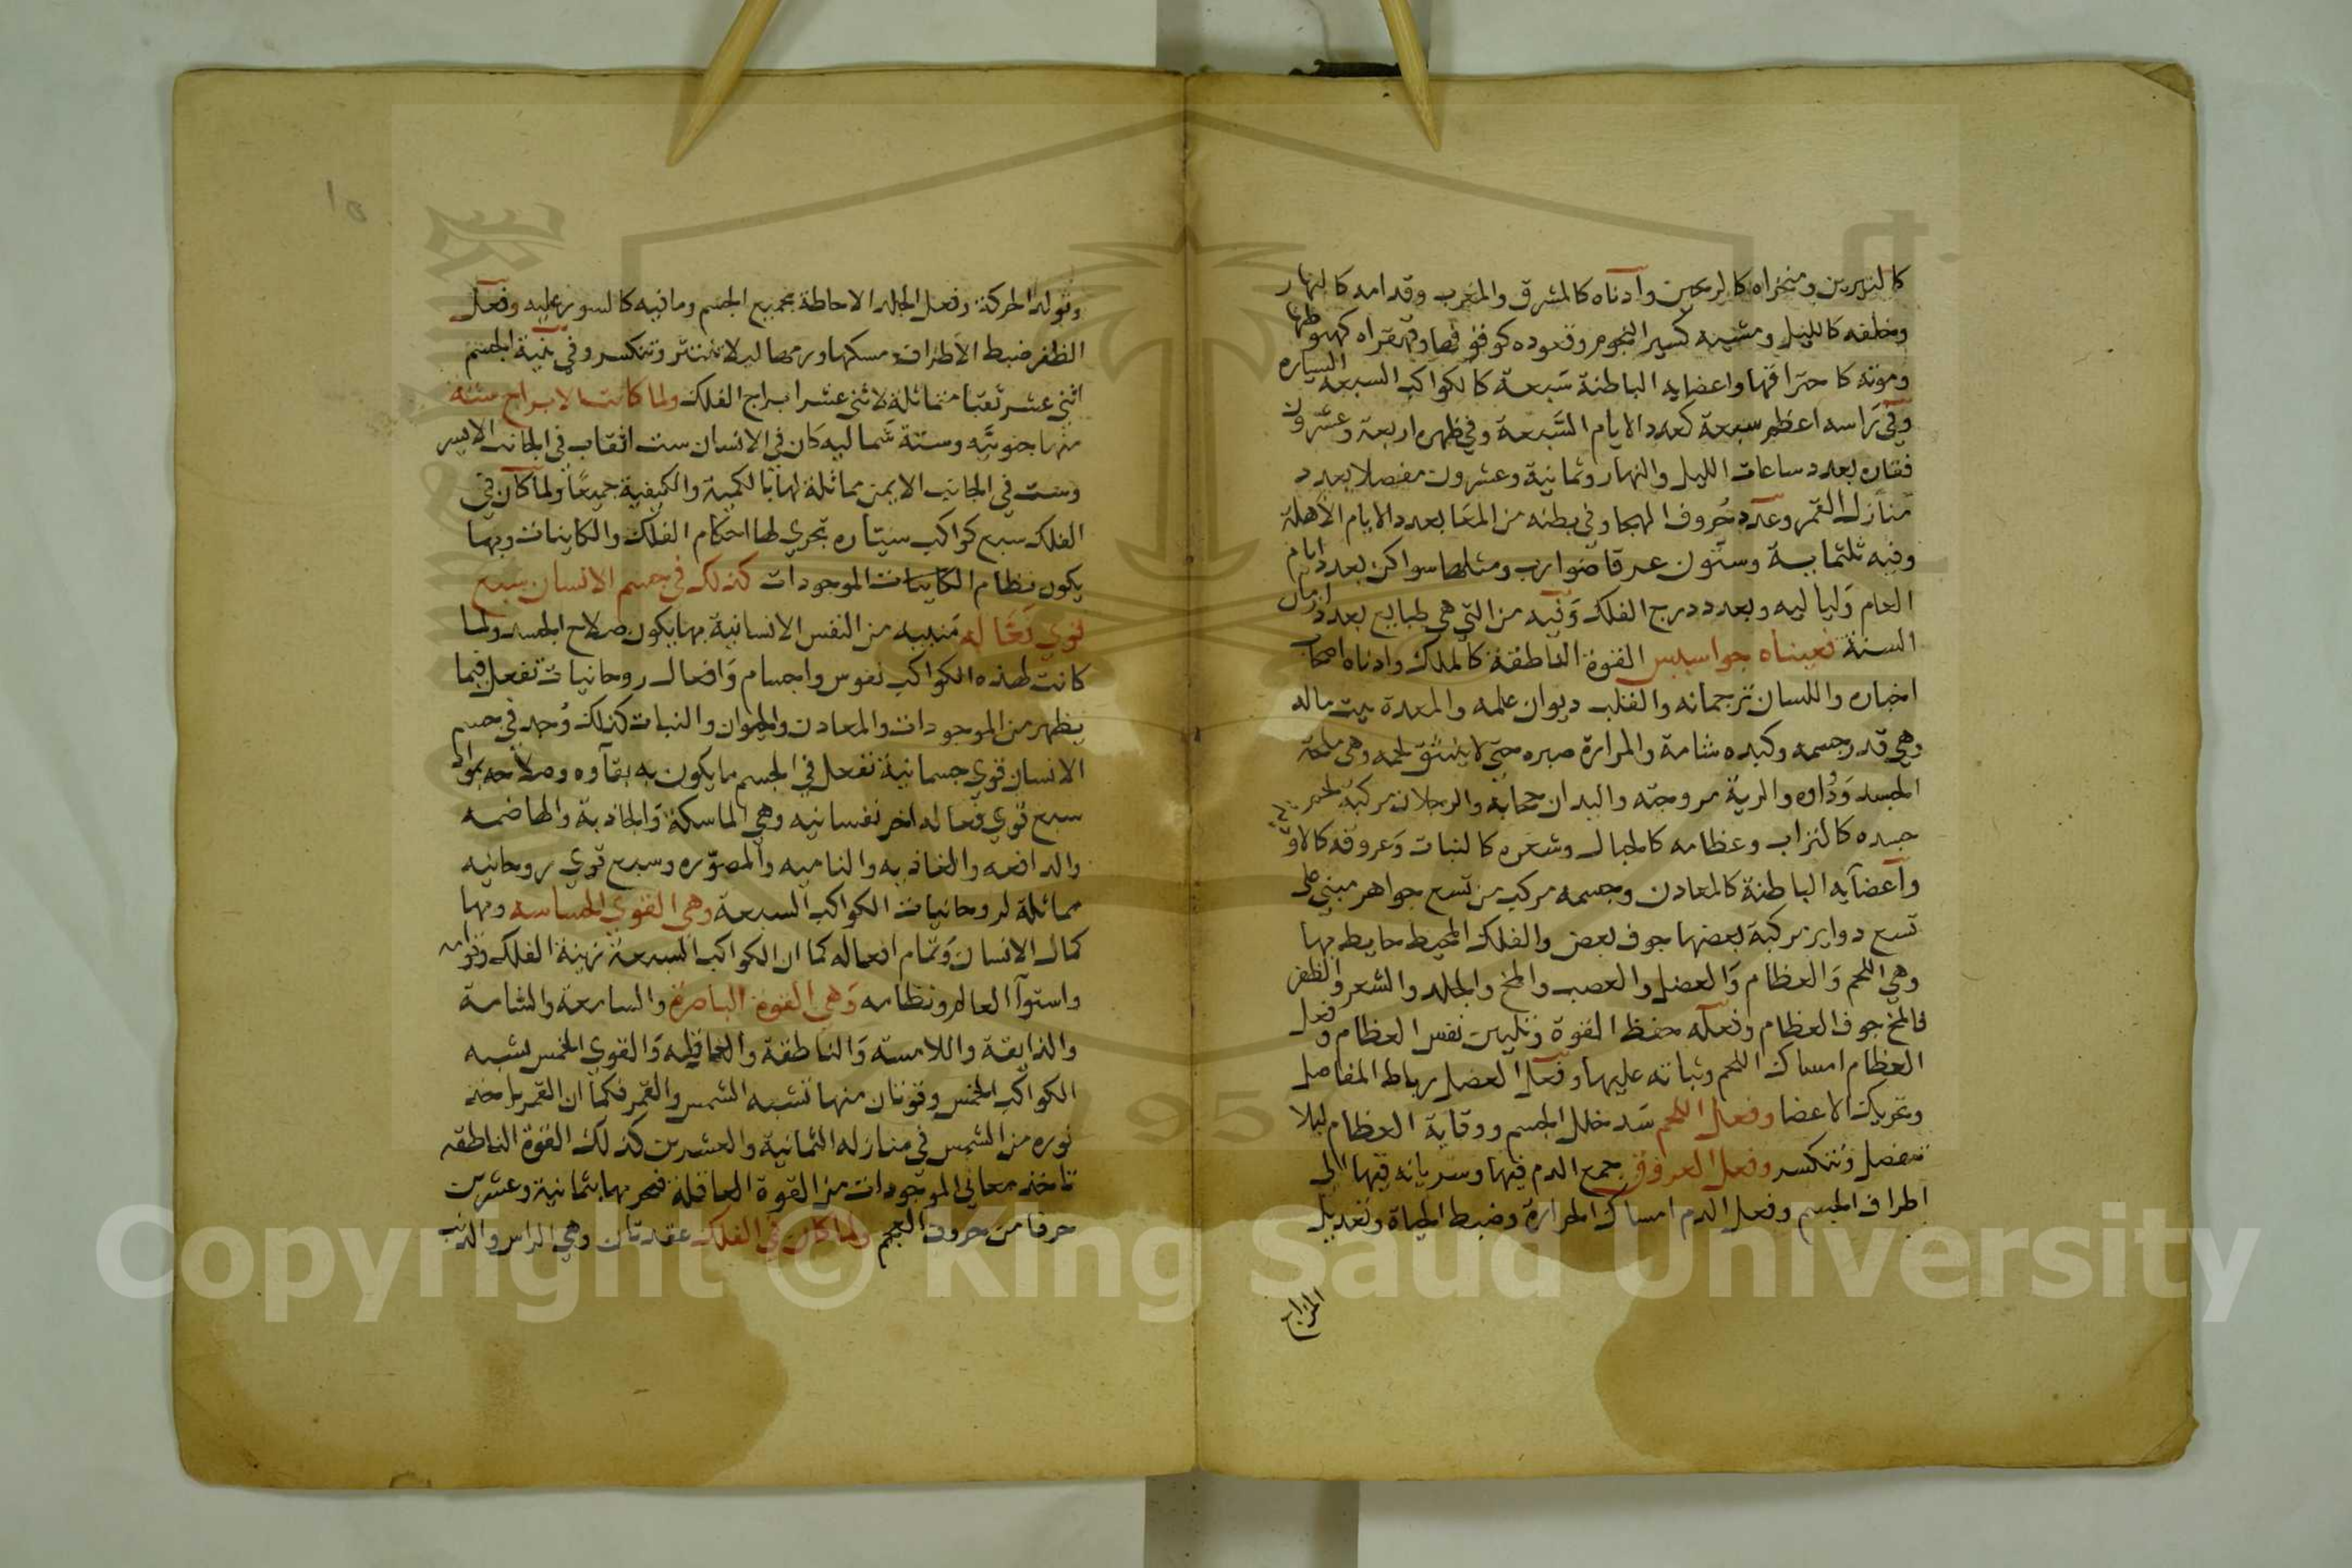 كالنيرين ومنخراه كالريحين وآدناه كالمشرق والمغرب وقدامه كالنهار
وخلفه كالليل ومشيه كسير النجوم وقعوده كوقوفها وقهقراه كهبوطها
وموته كاحتراقها واعضايه الباطنة سبعة كالكواكب السبعه السياره
وفي راسه اعظم سبعة كعدد الايام السبعة وفي ظهره اربعة وعشرون
فقاره بعدد ساعات الليل والنهار وثمانية وعشرون مفصلا بعدد
منازل القمر وعدد حروف الهجا وفي بطنه من المعا بعدد الايام الأهلة
وفيه ثلثماية وستون عرقا ضوارب ومثلها سواكن بعدد ايام
العام ولياليه وبعدد درج الفلك وفيه من التي هي طبايع بعدد ازمان
السنة فعيناه جواسيس القوة الناطقة كالملك واذناه اصحاب
اخباره واللسان ترجمانه والقلب ديوان علمه والمعدة بيت ماله
وهي قدر جسمه وكبده شامة والمرارة صبره حتى لا ينشق لحمه وهي ملحة
الجسد ودواه والرية مروحته واليدان حجابه والرجلان مركبه لحم
جسده كالتراب وعظامه كالجبال وشعره كالنبات وعروقه كالاو
وآعضآيه الباطنة كالمعادن وجسمه مركب من تسع جواهر مبني على
تسع دواير مركبة بعضها جوف بعض والفلك المحيط حايط بها
وهي اللحم والعظام والعضل والعصب والمخ والجلد والشعر والظفر
فالمخ جوف العظام وفعله حفظ القوة وتليين نفس العظام وفعل
العظام امساك اللحم وثباته عليها وفعل العضل رباط المفاصل
وتحريك الاعضا وفعل اللحم سد خلل الجسم ووقاية العظام ليلا
تنفصل وتنكسر وفعل العروق جمع الدم فيها وسريانه فيها الى
اطراف الجسم وفعل الدم امساك الحرارة وضبط الحياة وتعديل
المزاج
١٥
وتولد الحركة وفعل الجلد الاحاطة بجميع الجسم وما فيه كالسور عليه وفعل
الظفر ضبط الأطراف ومسكها ورمها ليلا تنتثر وتنكسر وفي بنية الجسم
اثني عشر ثقبا متماثلة لاثني عشر ابراج الفلك ولما كانت الابراج ستة
منها جنوبيه وستة شماليه كان في الانسان ست اثقاب في الجانب الايسر
وست في الجانب الايمن مماثلة لها بالكمية والكيفية جميعا ولما كان في
الفلك سبع كواكب سيتاره تجري لها احكام الفلك والكاينات وبها
يكون نظام الكاينات الموجودات كذلك في جسم الانسان سبع
قوي فعاله منبيه من النفس الانسانية بها يكون صلاح الجسد ولما
كانت لهذه الكواكب نفوس واجسام وافعال روحانيات تفعل فيما
يظهر من الموجودات والمعادن والحيوان والنبات كذلك وجد في جسم
الانسان قوي جسمانية تفعل في الجسم ما يكون به بقآوه وصلاحه بمواد
سبع قوي فعاله اخر نفسانيه وهي الماسكة والجاذبة والهاضمه
والدافعه والغاذيه والناميه والمصوّره وسبع قوي روحانيه
مماثلة لروحانيات الكواكب السبعة وهي القوي الحساسه وبها
كمال الانسان وتمام افعاله كما ان الكواكب السبعة زينة الفلك وقوامه
واستوآ العالم ونظامه وهي القوة الباصرة والسامعة والشامة
والذايقة واللامسة والناطقة والحافظه والقوي الخمس تشبه
الكواكب الخمس وقوتان منها تشبه الشمس والقمر فكما ان القمر ياخذ
نوره من الشمس في منازله الثمانية والعشرين كذلك القوة الناطقه
تاخذ معاني الموجودات من القوة العاقلة فتحر بها بثمانية وعشرين
حرفا من حروف المعجم ولما كان في الفلك عقدتان وهي الراس والذنب
Copyright © King Saud University
1957